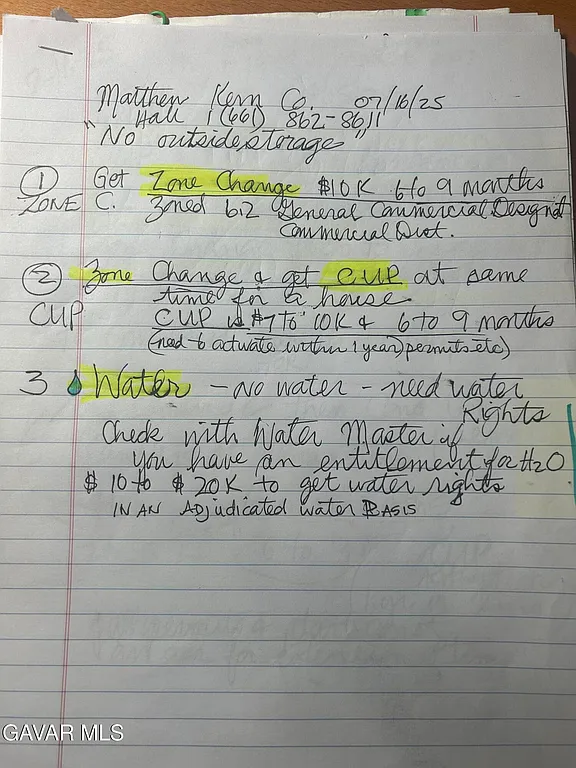 Matthew Kern Co. 07/16/25
Hall 1(661) 862-8611
"No outside storage"
1 Get Zone Change $10K 6 to 9 months
ZONE C. Zoned 6.2 General Commercial Designat
Commercial Dist.
2 Zone Change & get CUP at same
time for a house.
CUP CUP is $7 to 10K & 6 to 9 months
(need to activate within 1 year) permits etc)
3 Water - no water - need water
Rights
Check with Water Master if
you have an entitlement for H2O
$10 to $20K to get water rights
IN AN Adjudicated water BASIS
GAVAR MLS